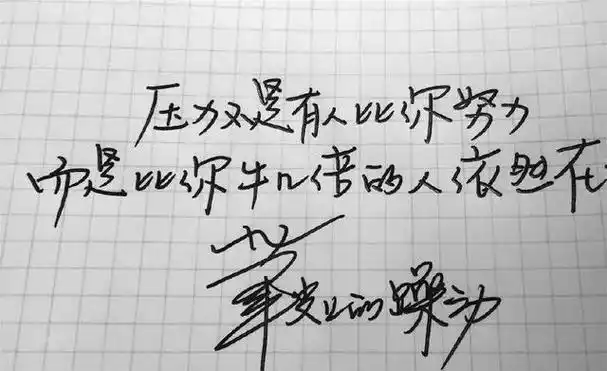 压力不是有人比你努力
而是比你牛几倍的人依然在
的躁动